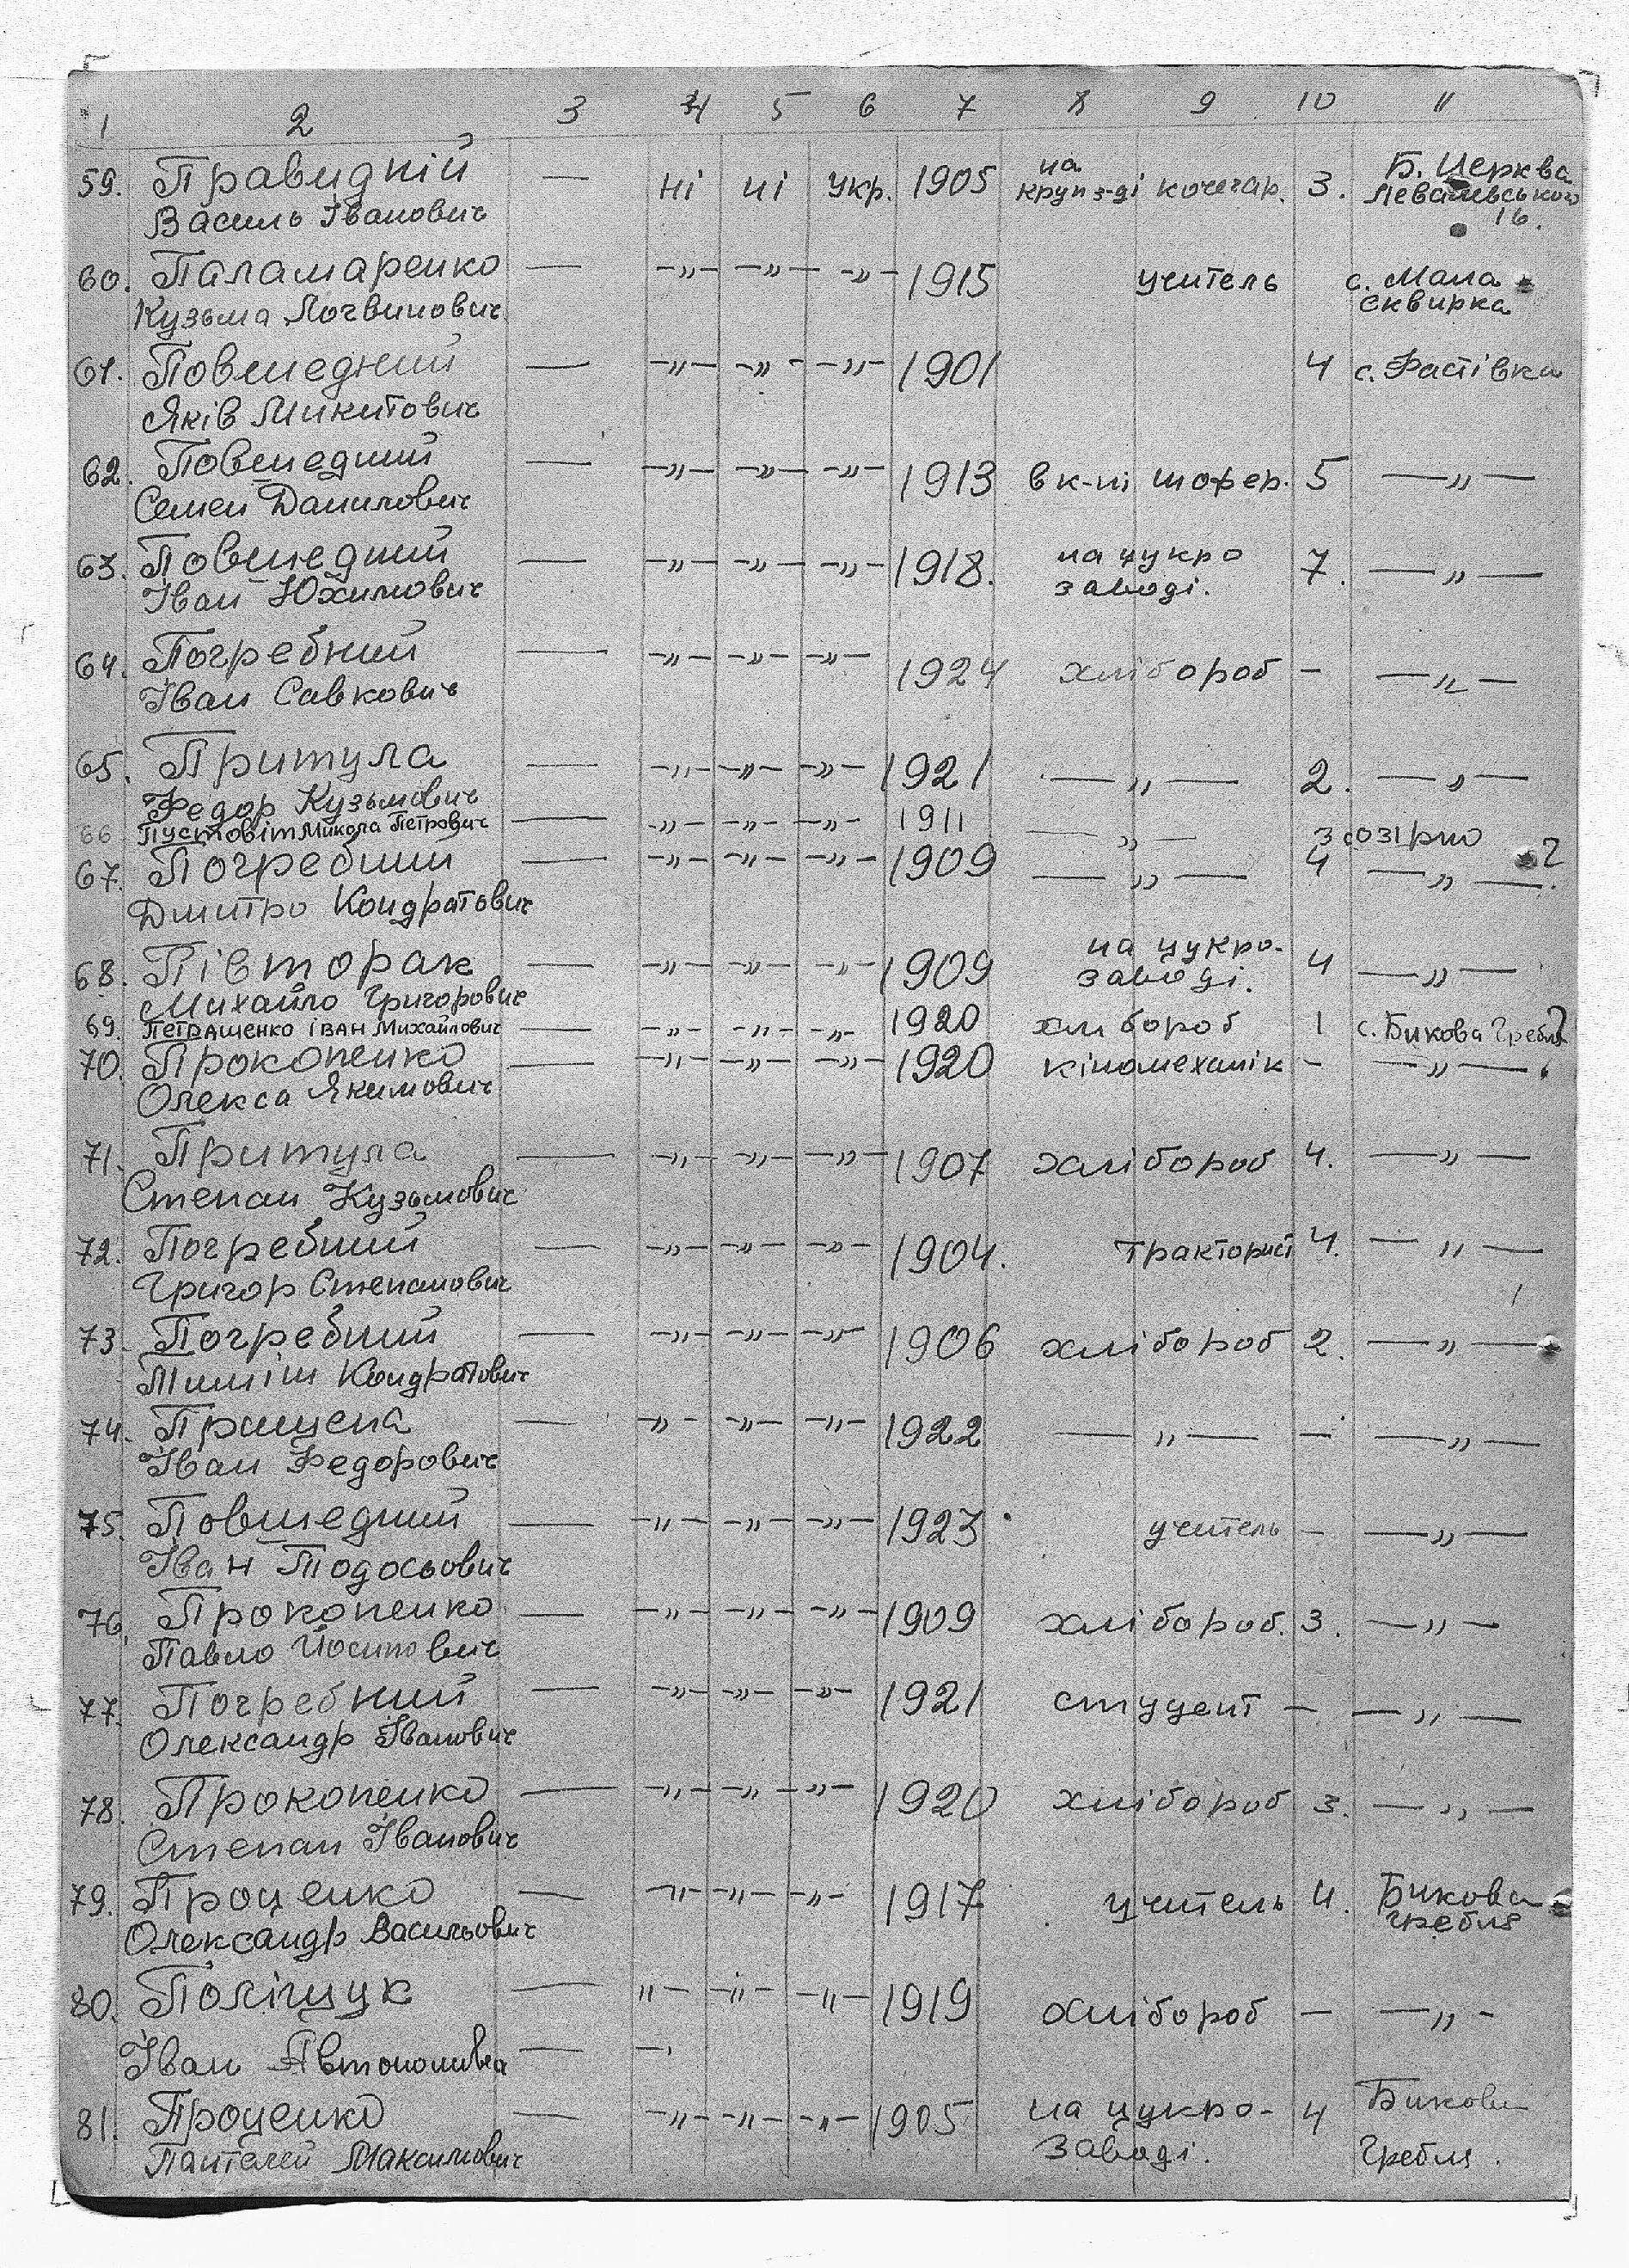 1 2 3 4 5 6 7 8 9 10 11
59. Правидній — ні ні укр. 1905 на круп з-ді кочегар. 3. Б. Церква
Василь Іванович Левалевського 16.
60. Паламаренко — -"- -"- -"- 1915 учитель с. Мала
Кузьма Логвинович Сквирка
61. Повшедний — -"- -"- -"- 1901 4 с. Фастівка
Яків Микитович
62. Повшедний — -"- -"- -"- 1913 в к-пі шофер. 5 —"—
Семен Данилович
63. Повшедний — -"- -"- -"- 1918. на цукро 7. —"—
Іван Юхимович заводі.
64. Погребний — -"- -"- -"- 1924 хлібороб - —"—
Іван Савкович
65. Притула — -"- -"- -"- 1921 —"— 2. —"—
Федор Кузьмович
66 Пустовіт Микола Петрович — -"- -"- -"- 1911 —"— 3
67. Погребний — -"- -"- -"- 1909 —"— 4 —"— ?
Дмитро Кондратович
68. Півторак — -"- -"- -"- 1909 на цукро- 4 —"—
Михайло Григорович заводі.
69. Петрашенко Іван Михайлович — -"- -"- -"- 1920 хлібороб 1 с. Бикова Гребля
70. Прокопенко — -"- -"- -"- 1920 кіномеханік - —"—
Олекса Якимович
71. Притула — -"- -"- -"- 1907 хлібороб 4. —"—
Степан Кузьмович
72. Погребний — -"- -"- -"- 1904. тракторист 4. —"—
Григор Степанович
73. Погребний — -"- -"- -"- 1906 хлібороб 2. —"—
Тимиіш Кондратович
74. Прищепа — -"- -"- -"- 1922 —"— - —"—
Іван Федорович
75. Повшедний — -"- -"- -"- 1923 учитель - —"—
Іван Тодосьович
76. Прокопенко — -"- -"- -"- 1909 хлібороб. 3. —"—
Павло Йосипович
77. Погребний — -"- -"- -"- 1921 студент - —"—
Олександр Іванович
78. Прокопенко — -"- -"- -"- 1920 хлібороб 3. —"—
Степан Іванович
79. Проценко — -"- -"- -"- 1917 учитель 4. Бикова
Олександр Васильович гребля
80. Поліщук — "- -"- -"- 1919 хлібороб - —"-
Іван Автономива — -,
81. Проценко — -"- -"- -"- 1905 на цукро- 4 Бикова
Пантелей Максимович заводі. Гребля.